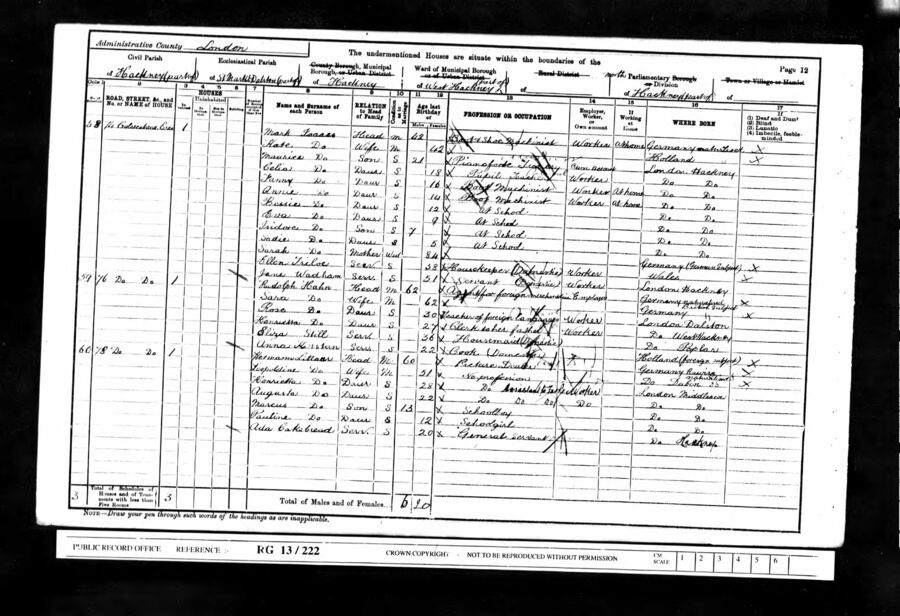 Administrative County London
The undermentioned Houses are situate within the boundaries of the
Page 12
Civil Parish
of Hackney (part of)
Ecclesiastical Parish
of St Marks Dalston (part of)
County Borough, Municipal Borough, or Urban District
of Hackney
Ward of Municipal Borough or of Urban District
of West Hackney (part of)
Rural District
of
north Parliamentary Borough or Division
of Hackney (part of)
Town or Village or Hamlet
of
1 2 3 4 5 6 7 8 9 10 11 12 13 14 15 16 17
ROAD, STREET, &c., and No. or NAME of HOUSE
HOUSES
Uninhabited
Name and Surname of each Person
RELATION to Head of Family
Age last Birthday of
Males Females
PROFESSION OR OCCUPATION
Employer, Worker, or Own account
If Working at Home
WHERE BORN
If
(1) Deaf and Dumb
(2) Blind
(3) Lunatic
(4) Imbecile, feeble-minded
58 1 Mark Isaacs Head M 42 Boot & Shoe Machinist Worker At home Germany
Kate Do Wife M 42 Holland
Maurice Do Son S 21 Pianoforte Own account London Hackney
Celia Do Daur S 18 Pupil Teacher Worker Do Do
Fanny Do Daur S 16 Boot Machinist Worker At home Do Do
Annie Do Daur S 14 Boot Machinist Worker At home Do Do
Bessie Do Daur S 12 At School Do Do
Eva Do Daur S 9 At School Do Do
Isidore Do Son S 7 At School Do Do
Sadie Do Daur S 5 At School Do Do
Sarah Do Mother Wid 84 Germany (German Subject)
Ellen Serv. S 38 Housekeeper (Domestic) Worker Wales
Jane Wadham Serv. S 51 Servant (Domestic) Worker London Hackney
59 76 Do Do 1 Rudolph Hahn Head M 62 Agent for foreign Employer Germany
Sara Do Wife M 62 Germany
Rose Do Daur S 30 Teacher of foreign languages Worker London Dalston
Henrietta Do Daur S 27 Clerk to her father Worker Do West Hackney
Eliza Still Serv. S 36 Housemaid (Domestic) Do Poplar
Anna Serv. S 22 Cook (Domestic) Holland (foreign subject)
60 78 Do Do 1 Herman Head M 60 Picture Dealer Germany
Leopoldine Do Wife M 51 No profession Do
Henrietta Do Daur S 28 Do Worker London Middlesex
Augusta Do Daur S 22 Do Do Do Do Do Do
Marcus Do Son S 13 Schoolboy Do Do
Pauline Do Daur S 12 Schoolgirl Do Do
Ada Oakebread Serv. S 20 General Servant Do Hackney
3 Total of Schedules of Houses and of Tenements with less than Five Rooms 3
Total of Males and of Females 6 20
NOTE—Draw your pen through such words of the headings as are inapplicable.
PUBLIC RECORD OFFICE REFERENCE :- RG 13/222 CROWN COPYRIGHT - NOT TO BE REPRODUCED WITHOUT PERMISSION CM SCALE 1 2 3 4 5 6